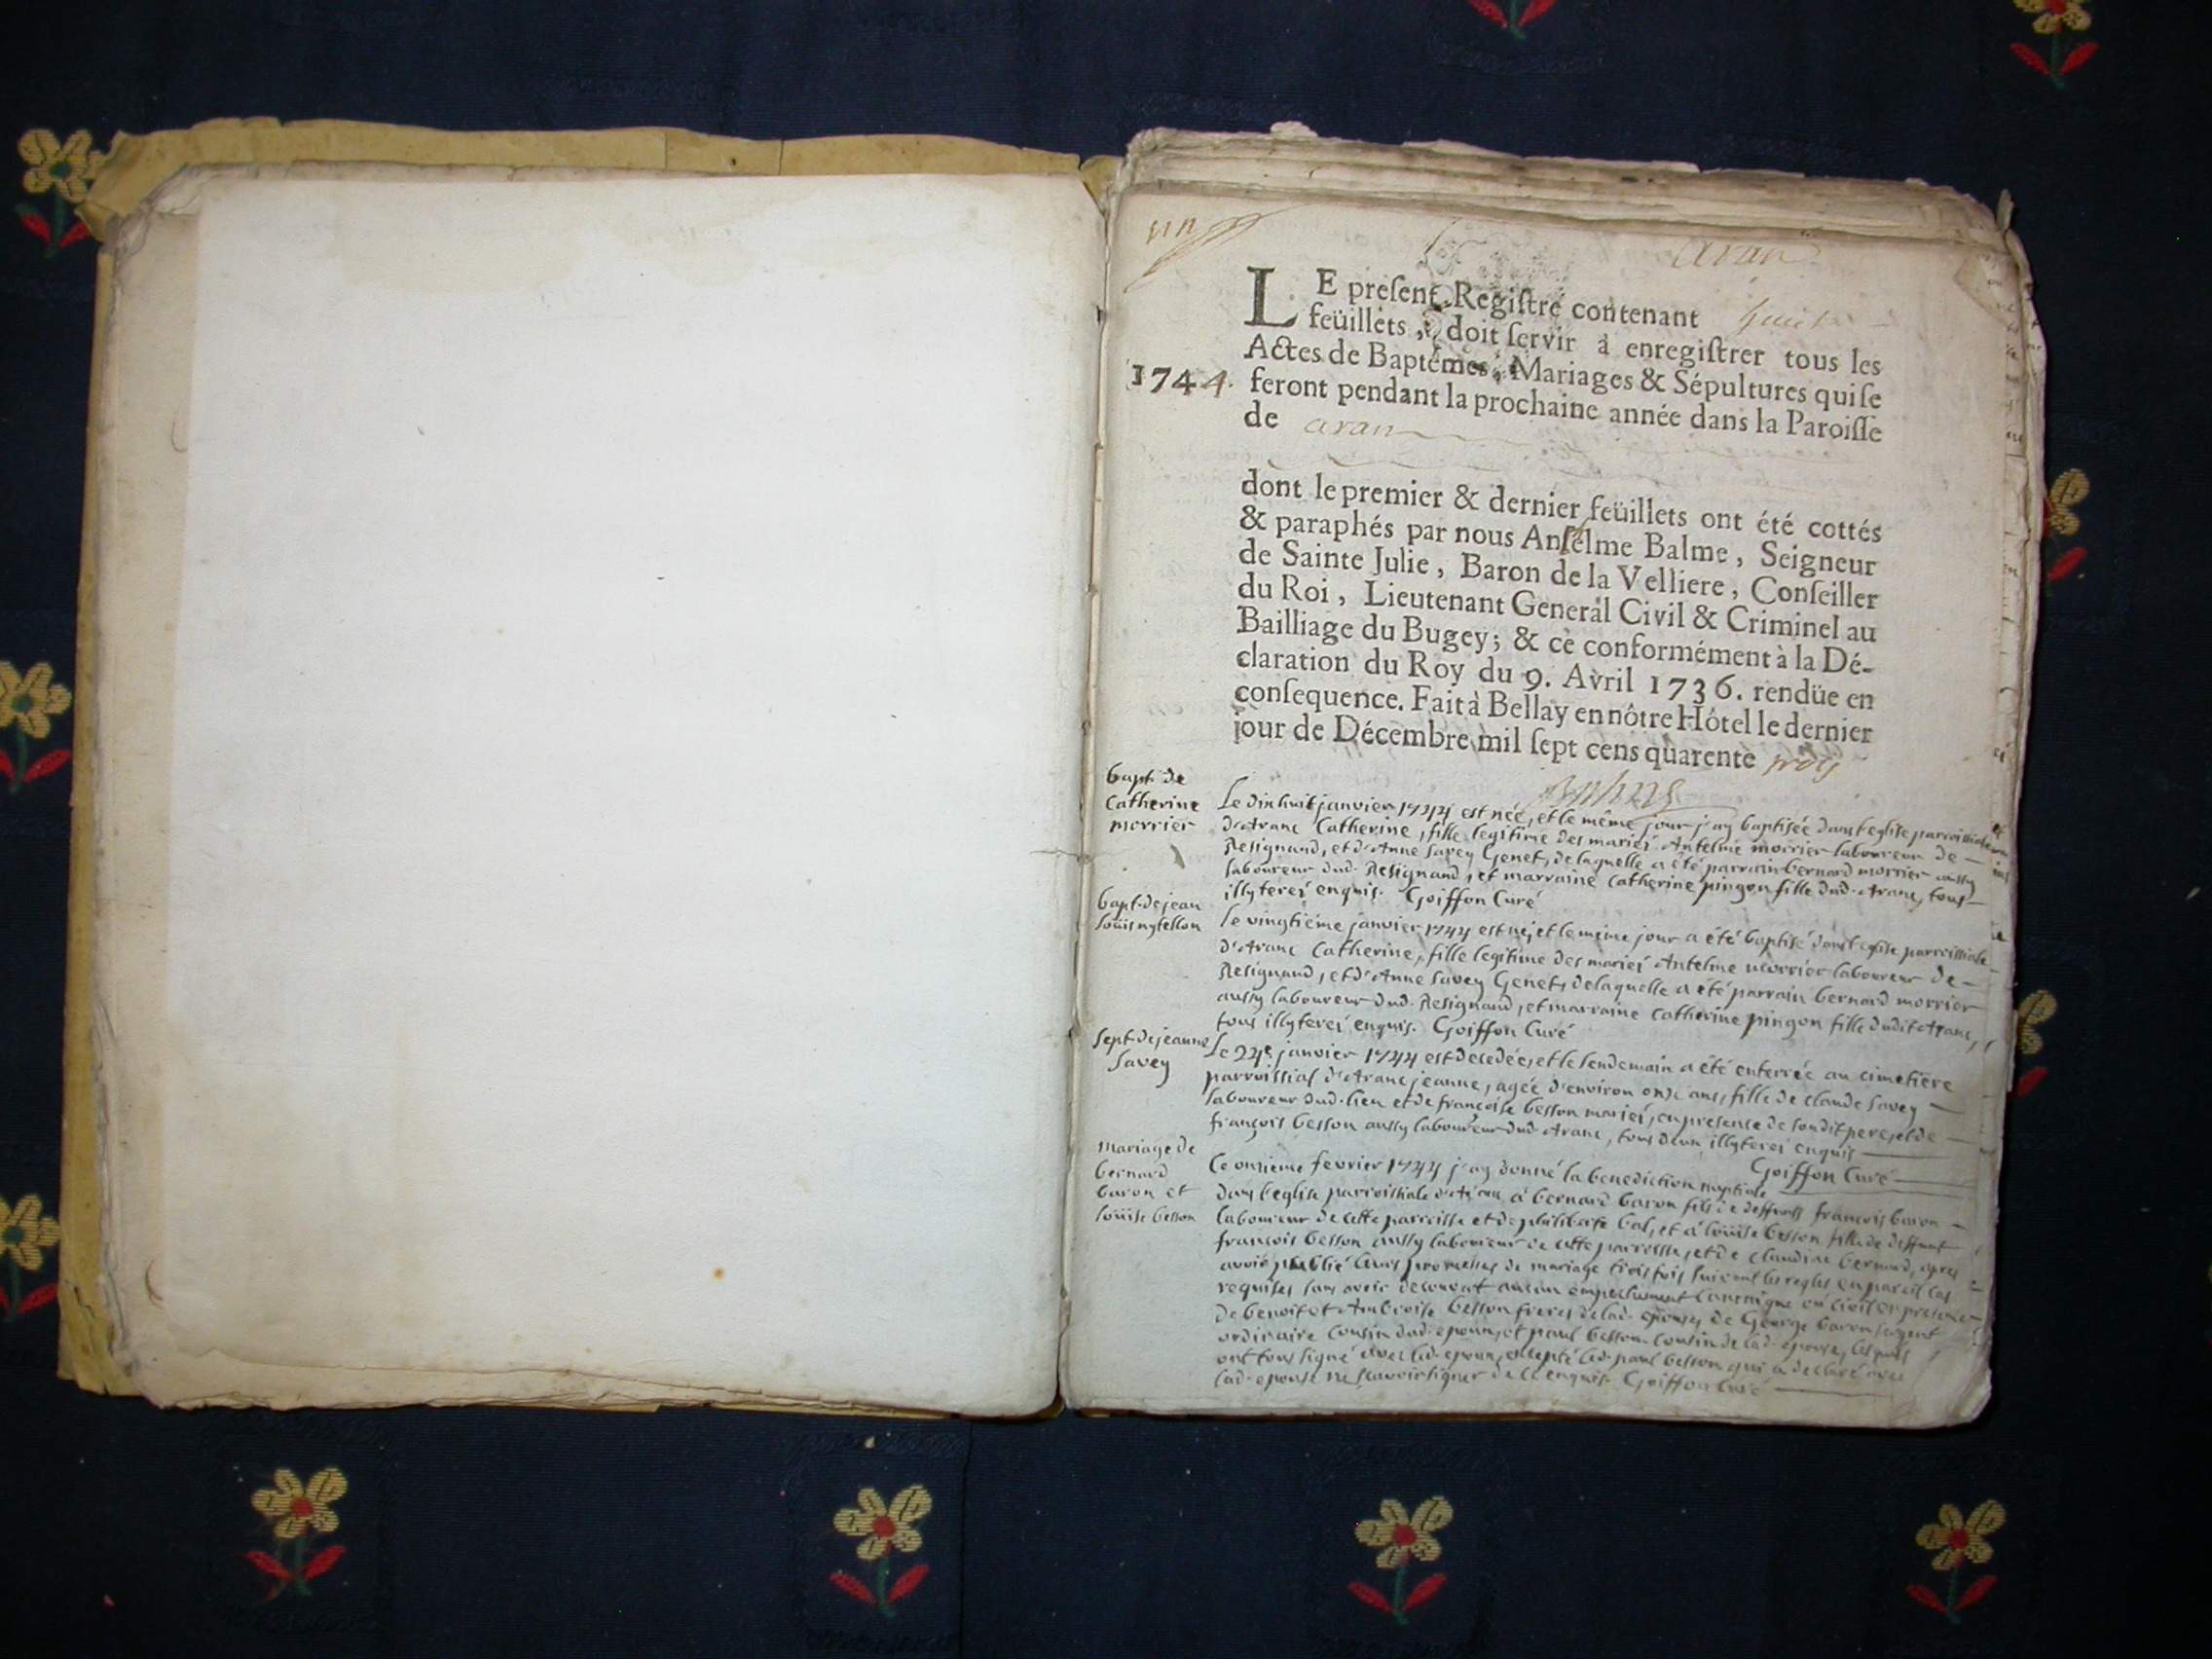 un
aran
LE preſent Regiſtre contenant huit
feüillets, doit ſervir à enregiſtrer tous les
Actes de Baptêmes, Mariages & Sépultures qui ſe
1744. feront pendant la prochaine année dans la Paroiſſe
de aran
dont le premier & dernier feüillets ont été cottés
& paraphés par nous Anſelme Balme, Seigneur
de Sainte Julie, Baron de la Velliere, Conſeiller
du Roi, Lieutenant General Civil & Criminel au
Bailliage du Bugey; & ce conformément à la Dé-
claration du Roy du 9. Avril 1736. rendüe en
conſequence. Fait à Bellay en nôtre Hôtel le dernier
jour de Décembre mil ſept cens quarente troiy
bapt. de
Catherine
morrier
Le dixhuit janvier 1744 est née, et le même jour j'ay baptisée dans l'eglise parroissiale
d'Aranc Catherine, fille legitime des mariés Antelme morrier laboureur de
Resignand, et d'Anne Savey Genet, de laquelle a été parrain bernard morrier aussy
laboureur dud. Resignand, et marraine Catherine pingon fille dud. Aranc, tous
illyterés enquis. Goiffon Curé
bapt. de jean
loüis mytellon
le vingtiéme janvier 1744 est né, et le même jour a été baptisé dans l'eglise parroissiale
d'Aranc Catherine, fille legitime des mariés Antelme morrier laboureur de
Resignand, et d'Anne Savey Genet, de laquelle a été parrain bernard morrier
aussy laboureur dud. Resignand, et marraine Catherine pingon fille dudit Aranc,
tous illyterés enquis. Goiffon Curé
sept. de jeanne
Savey
Le 24e janvier 1744 est decedée, et le lendemain a été enterrée au cimetière
parroissial d'Aranc jeanne, agée d'environ onze ans, fille de claude Savey
laboureur dud. lieu et de françoise besson mariés, en presence de sondit pere, et de
françois besson aussy laboureur dud. Aranc, tous deux illyterés enquis
Goiffon Curé
mariage de
bernard
baron et
loüise besson
Ce onzieme fevrier 1744 j'ay donné la benediction nuptiale
dans l'eglise parroissiale d'Aranc à bernard baron fils de deffunct françois baron
laboureur de cette parroisse et de philiberte bal, et à loüise besson fille de deffunt
françois besson aussy laboureur de cette parroisse, et de claudine bernard, apres
avoir publié leurs promesses de mariage trois fois suivant les regles en pareil cas
requises sans avoir decouvert aucun empechement canonique ou civil en presence
de benoit et Ambroise besson freres de lad. epouse, de George baron sergent
ordinaire cousin dud. epoux, et paul besson cousin de lad. epouse, lesquels
ont tous signé avec led. epoux, excepté led. paul besson qui a declaré avec
lad. epouse ne sçavoir signer de ce enquis. Goiffon Curé